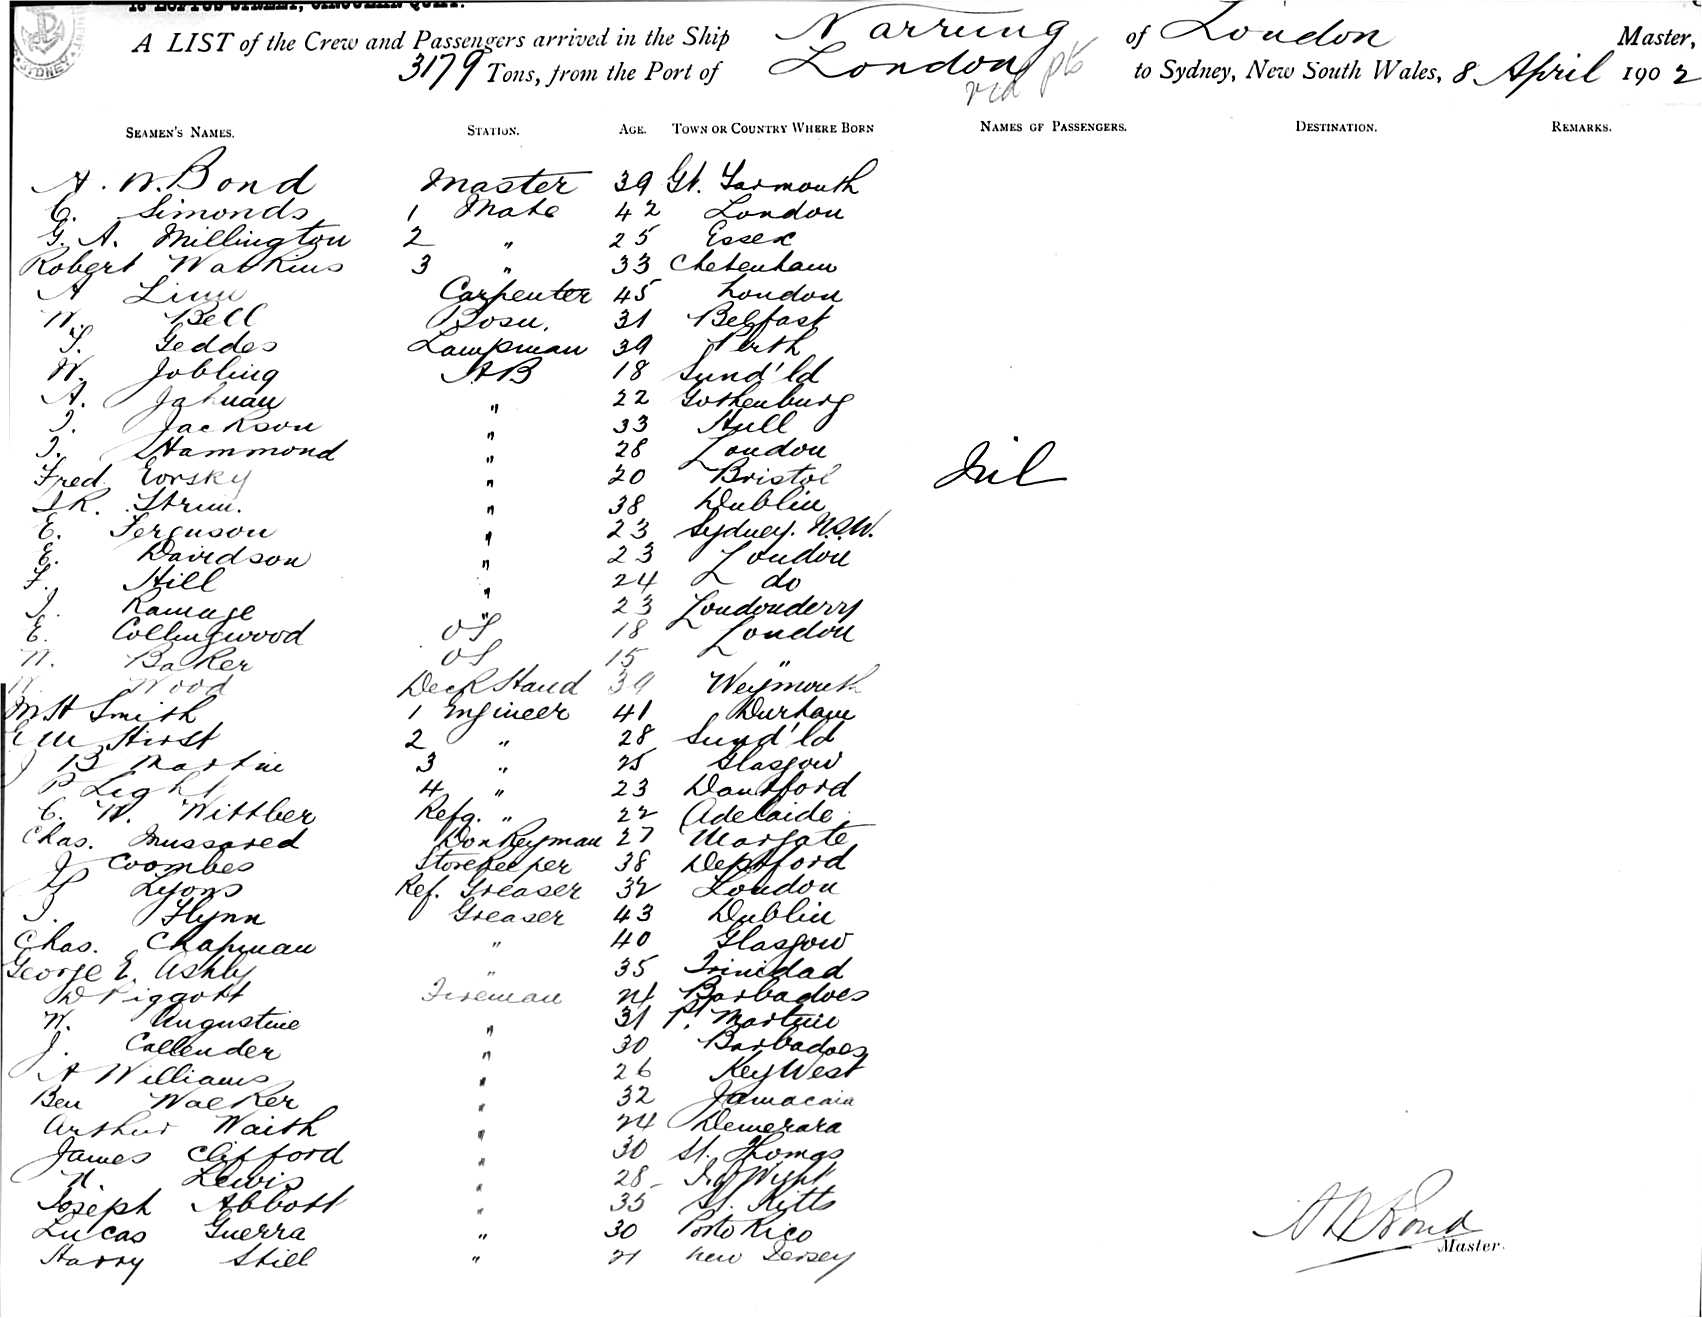 A LIST of the Crew and Passengers arrived in the Ship Narrung of London Master,
3179 Tons, from the Port of London via pts to Sydney, New South Wales, 8 April 1902
SEAMEN'S NAMES. STATION. AGE. TOWN OR COUNTRY WHERE BORN NAMES OF PASSENGERS. DESTINATION. REMARKS.
A. W. Bond Master 39 Gt. Yarmouth
C. Simonds 1 Mate 42 London
G. A. Millington 2 " 25 Essex
Robert Watkins 3 " 33 Cheltenham
A Linn Carpenter 45 London
W. Bell Bosn. 31 Belfast
Geddes Lampman 39 Perth
W. Jobling AB 18 Sund'ld
A. " 22 Gothenburg
J. Jackson " 33 Hull
J. Hammond " 28 London
Fred. " 20 Bristol
Nil
" 38 Dublin
E. Ferguson " 23 Sydney. N.S.W.
E. Davidson " 23 London
F. Hill " 24 do
J. Ramage " 23 Londonderry
E. Collingwood OS 18 London
Baker OS 15 "
W. Wood Deck Hand 39 Weymouth
Smith 1 Engineer 41 Durham
Hirst 2 " 28 Sund'ld
J B Martin 3 " 25 Glasgow
P Light 4 " 23
C. W. Wittber Refg. " 22 Adelaide
Chas. Mussared Donkeyman 27 Margate
Coombes Storekeeper 38 Deptford
Lyons Ref. Greaser 32 London
J. Flynn Greaser 43 Dublin
Chas. Chapman " 40 Glasgow
George E. Ashby " 35 Trinidad
D Piggott Fireman 24 Barbadoes
W. Augustine " 31
J. Callender " 30 Barbadoes
A Williams " 26 Key West
Ben Walker " 32 Jamacaia
Arthur Waith " 24 Demerara
James Clifford " 30 St. Thomas
Lewis " 28 I of Wight
Joseph Abbott " 35 St. Kitts
Lucas Guerra " 30 Porto Rico
Harry Still " 21 New Jersey
A W Bond
Master.